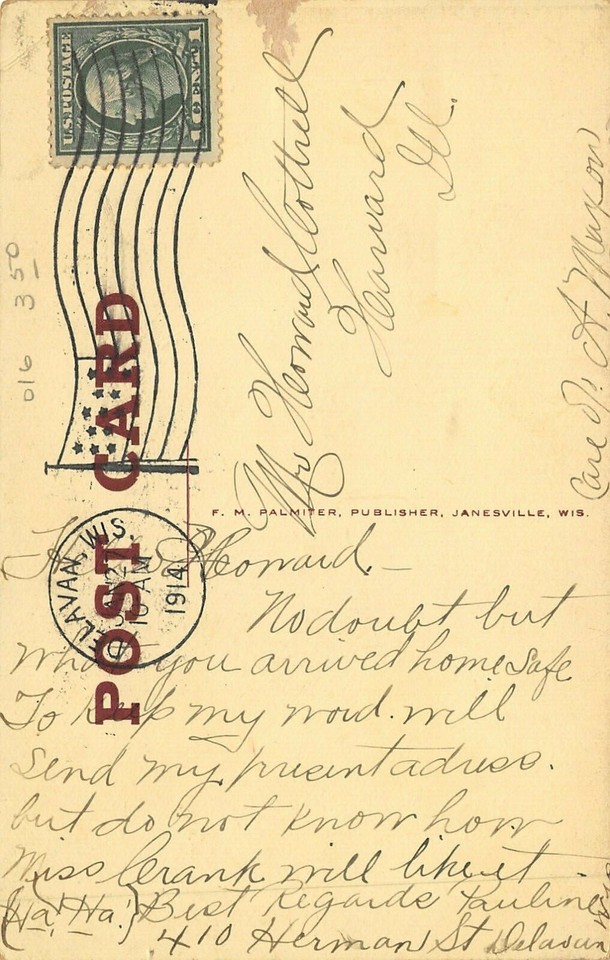 U.S. POSTAGE
1 CENT 1
Mr Howard Cottrell
Harvard
Ill.
Care of A Maxon
016 350
POST CARD
DELAVAN, WIS.
JAN 27
10 AM
1914
F. M. PALMITER, PUBLISHER, JANESVILLE, WIS.
Howard.—
No doubt but
what you arrived home safe
To keep my word. will
send my present adress.
but do not know how
Miss Crank will like it.
{Ha! Ha!} Best Regards Pauline
410 Herman St Delavan